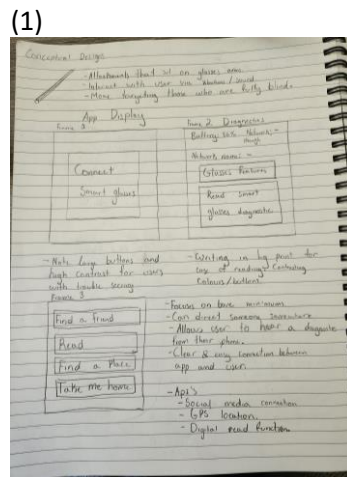 (1)
Conceptual Design
-Attachments that sit on glasses arms.
-Interact with user via vibrations / sound
-More targeting those who are fully blind.
App Display
Frame 1
Connect
Smart glasses
Frame 2 Diagnostics
Battery: 50% Network: -
Network name: -
Glasses Features
Read smart
glasses diagnostic
-Note large buttons and
high contrast for users
with trouble seeing
-Writing in big print for
ease of reading. Contrasting
colours/buttons.
Frame 3
Find a friend
Read
Find a Place
Take me home
-Focuses on bare minimums
-Can direct someone somewhere
-Allows user to hear a diagnostic
from their phone.
-Clear & easy connection between
app and user.
-Api's
-Social media connection
-GPS location.
-Digital read function